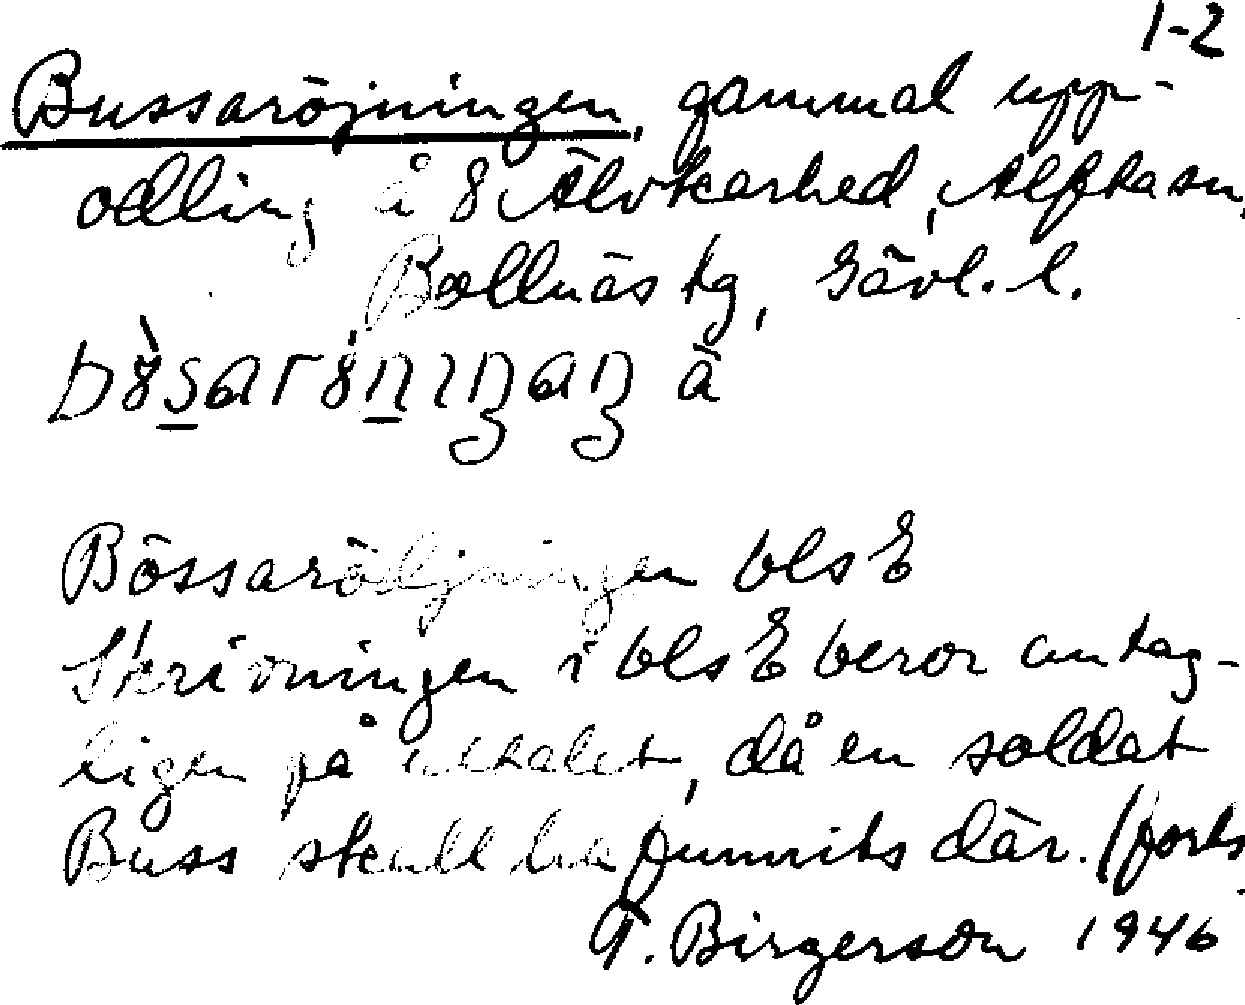 1-2
Bussaröjningen, gammal upp-
odling å 8 Älvkarhed, Alfta sn,
Bollnäs tg, Gävl. l.
Bössarödjningen bls E
Skrivningen i bls E beror antag-
ligen på uttalet, då en soldat
Buss skall ha funnits där. (forts.
T. Birgerson 1946